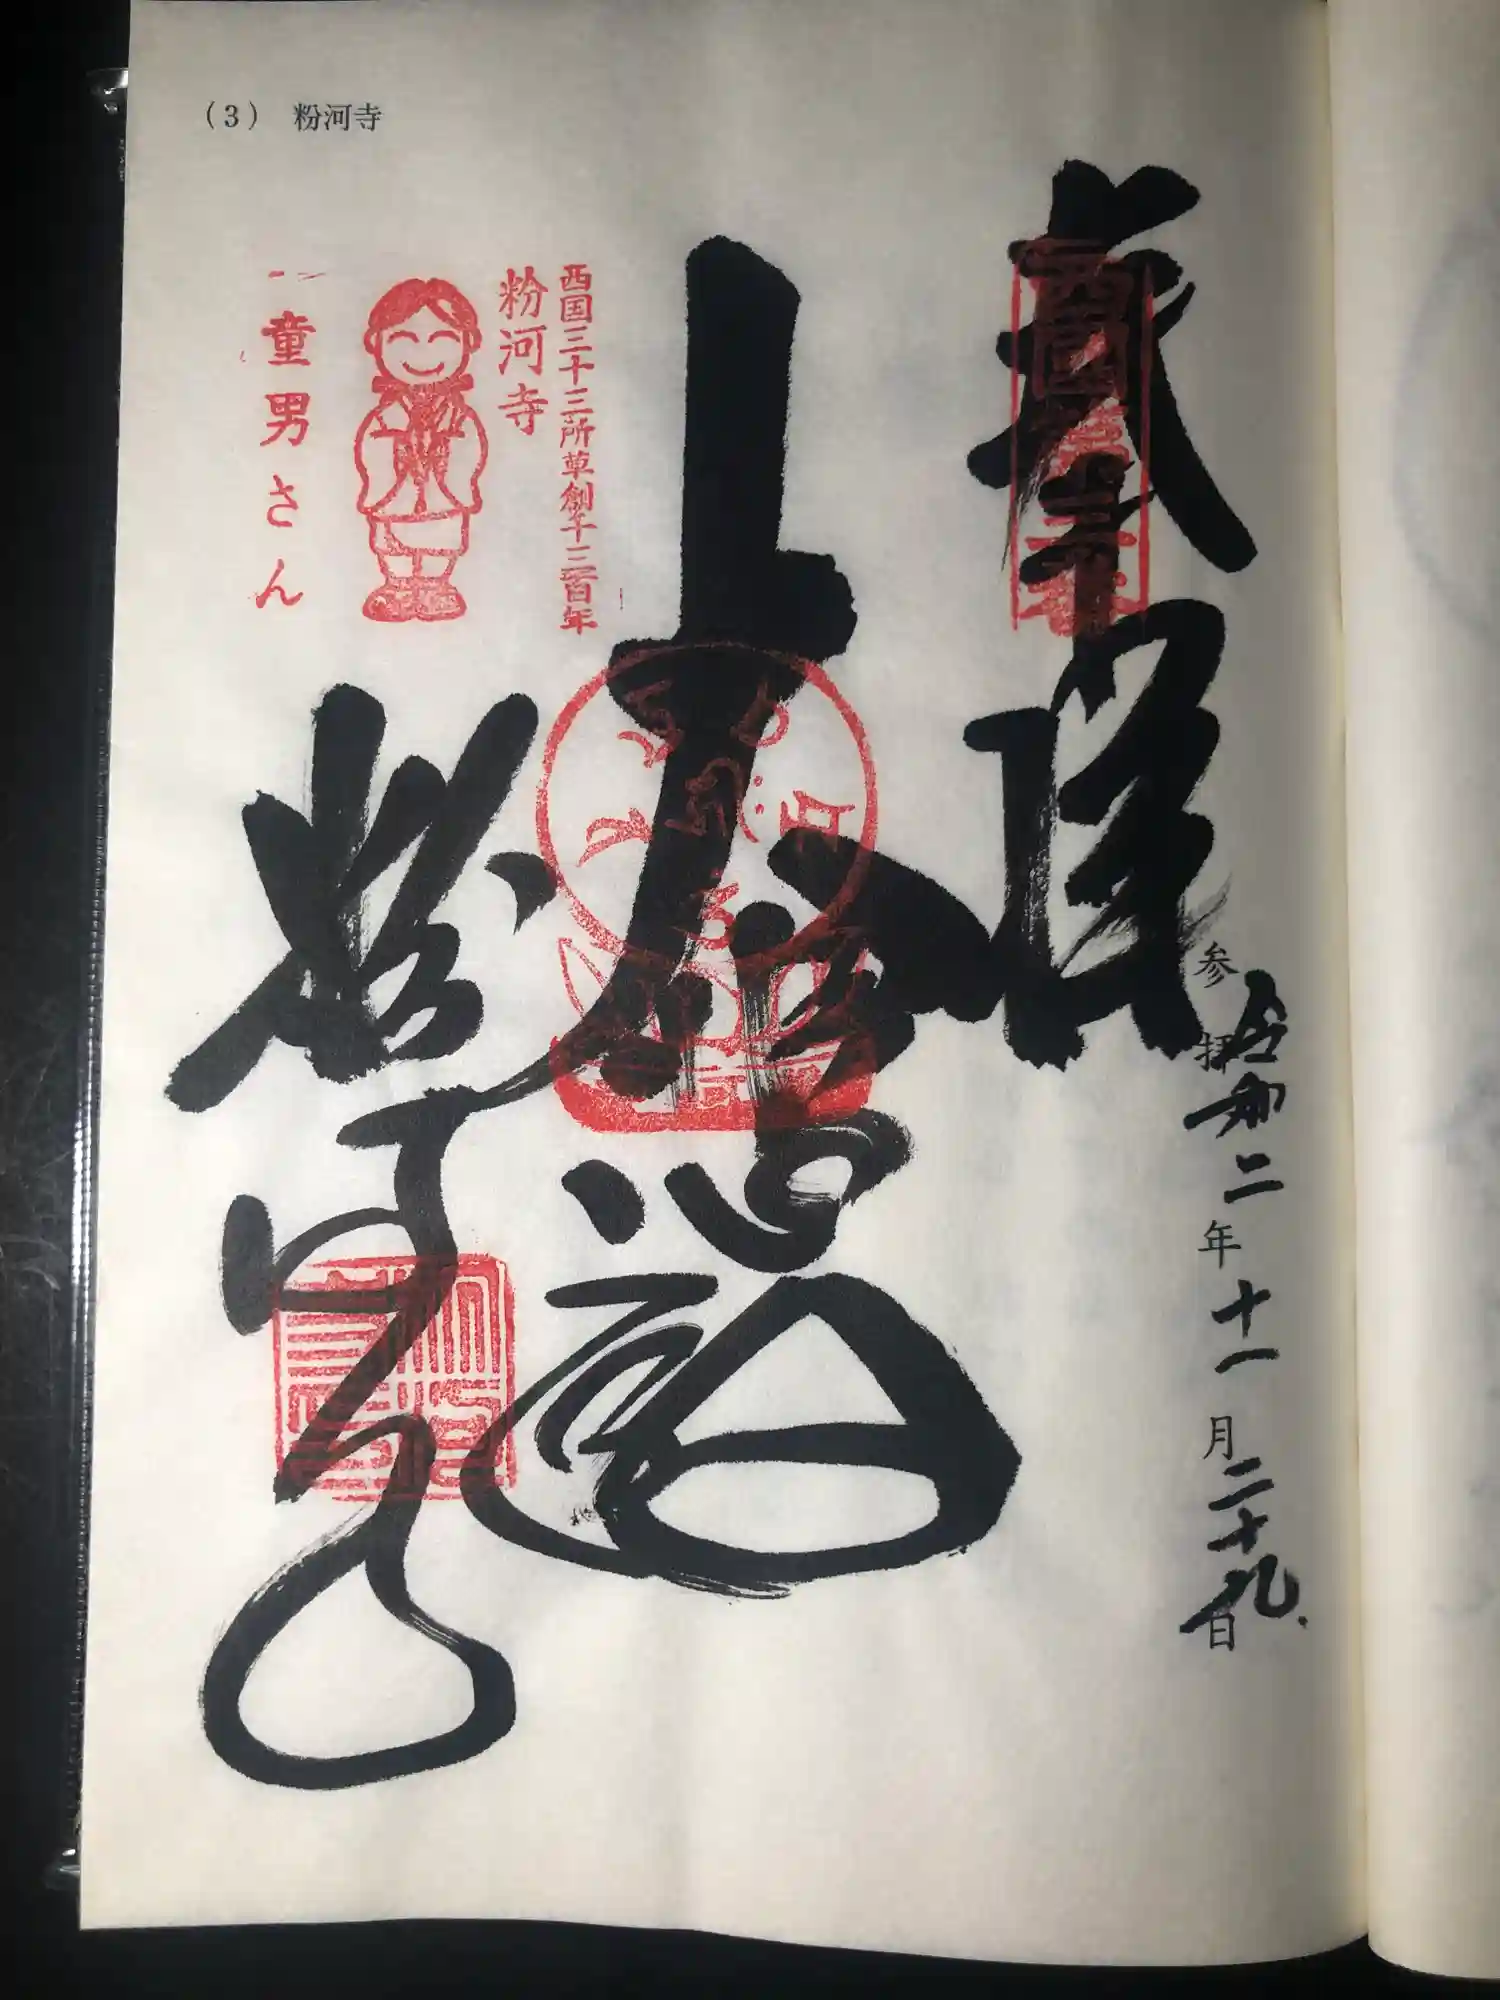 (3) 粉河寺
奉拝
西国第三番
参拝 令和二年十一月二十九日
大悲殿
西国三十三所草創千三百年
粉河寺
童男さん
粉河寺